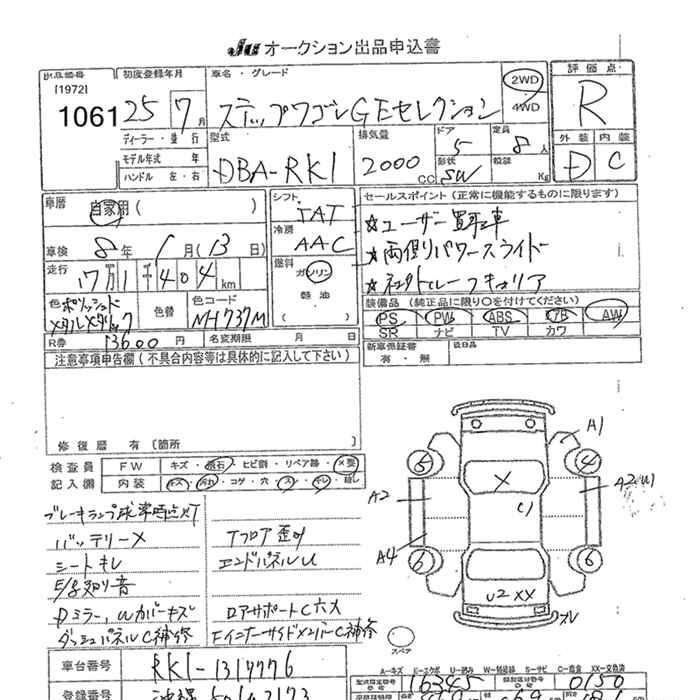 Ju オークション出品申込書
出品番号 初度登録年月 車名・グレード 評価点
[1972]
1061 25 7月 ステップワゴン Gモセレクション 2WD 4WD R
ディーラー・並行 型式 排気量 ドア 定員 外装 内装
モデル年式 年 DBA-RK1 2000CC 5 8人 D C
ハンドル 左・右 形状 SW 積載 Kg
車歴 自家用( ) シフト IAT セールスポイント(正常に機能するものに限ります)
車検 8年 1月(13日) 冷房 AAC ☆ユーザー買取車
走行 17万1千404km 燃料 ガソリン 軽油 ( ) ☆両側パワースライド
色 ポリッシュドメタルメタリック 色替 色コード NH737M
装備品(純正品に限り○を付けてください)
PS PW ABS AB AW
SR ナビ TV カワ
R券 13600円 名変期限 月 日 新車保証書 有・無 後日品
注意事項申告欄(不具合内容等は具体的に記入して下さい)
修復歴 有〔箇所 〕
検査員 FW キズ・飛石・ヒビ割・リペア跡・×要
記入欄 内装 キズ・汚れ・コゲ・穴・スレ・キレ・
ブレーキランプ球常時点灯
バッテリー×
シートキレ
E/g異音
Dミラー、Wカバーキズ
ダッシュパネルC補修
Tフロア歪み
エンドパネルU
ロアサポートC穴大
FインナーサイドメンバーC補修
A1
5 4
A2 X A2W1
U
A4
6 6
U2 XX
スペア
A-キズ E-エクボ U-凹み W-補修跡 S-サビ C-腐食 XX-交換済
車台番号 RK1-1317776
登録番号